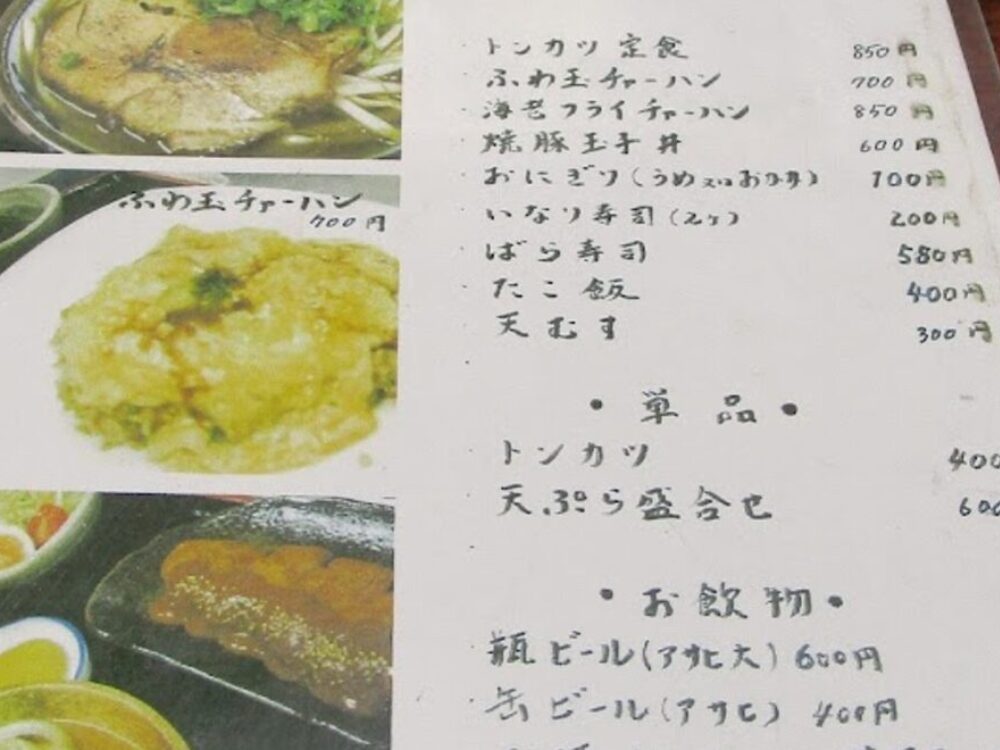 トンカツ定食 850円
ふわ玉チャーハン 700円
海老フライチャーハン 850円
焼豚玉子丼 600円
おにぎり(うめ又はおかか) 100円
いなり寿司(2ヶ) 200円
ばら寿司 580円
たこ飯 400円
天むす 300円
・単品・
トンカツ 400
天ぷら盛合せ 600
・お飲物・
瓶ビール(アサヒ大) 600円
缶ビール(アサヒ) 400円
ふわ玉チャーハン
700円